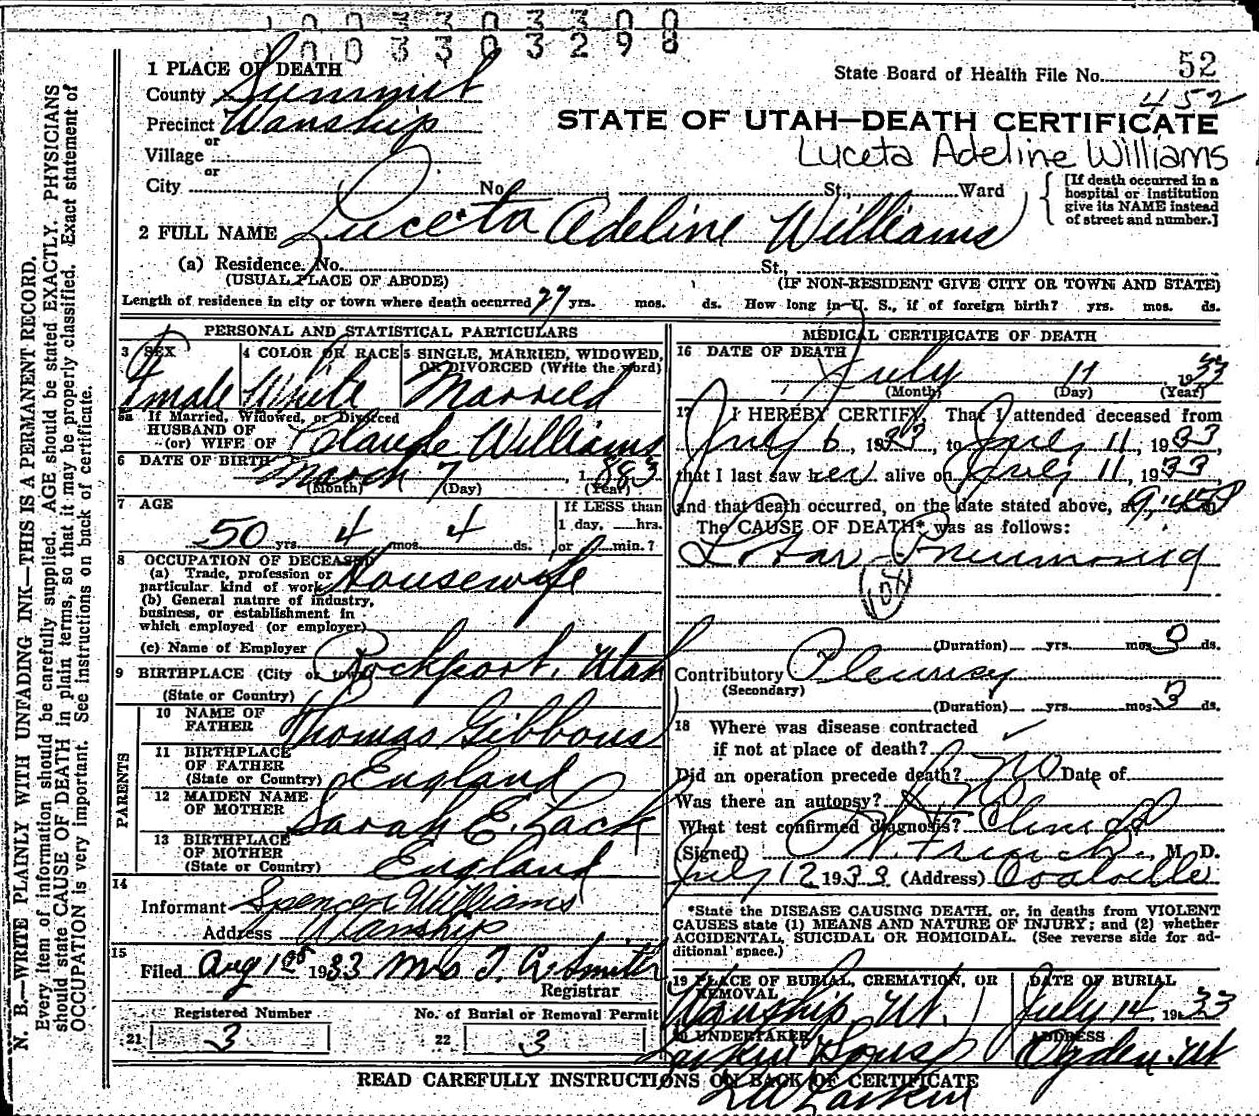 1 0 0 3 3 0 3 3 0 0
0 0 0 3 3 0 3 2 9 8
1 PLACE OF DEATH
State Board of Health File No. 52
County Summit
452
Precinct Wanship
STATE OF UTAH—DEATH CERTIFICATE
or
Village
Luceta Adeline Williams
or
City No. St., Ward
[If death occurred in a
hospital or institution
give its NAME instead
of street and number.]
2 FULL NAME Luceta Adeline Williams
(a) Residence. No. St.,
(USUAL PLACE OF ABODE) (IF NON-RESIDENT GIVE CITY OR TOWN AND STATE)
Length of residence in city or town where death occurred 27 yrs. mos. ds. How long in U. S., if of foreign birth? yrs. mos. ds.
PERSONAL AND STATISTICAL PARTICULARS
3 SEX
Female
4 COLOR OR RACE
White
5 SINGLE, MARRIED, WIDOWED,
OR DIVORCED (Write the word)
Married
5a If Married, Widowed, or Divorced
HUSBAND OF
(or) WIFE OF Claude Williams
6 DATE OF BIRTH March 7, 1883
(Month) (Day) (Year)
7 AGE
50 yrs. 4 mos. 4 ds.
If LESS than
1 day, hrs.
or min.?
8 OCCUPATION OF DECEASED
(a) Trade, profession or
particular kind of work Housewife
(b) General nature of industry,
business, or establishment in
which employed (or employer)
(c) Name of Employer
9 BIRTHPLACE (City or town) Rockport, Utah
(State or Country)
PARENTS
10 NAME OF
FATHER Thomas Gibbons
11 BIRTHPLACE
OF FATHER
(State or Country) England
12 MAIDEN NAME
OF MOTHER Sarah E. Lack
13 BIRTHPLACE
OF MOTHER
(State or Country) England
14
Informant Spencer Williams
Address Wanship
15
Filed Aug 1 1933 Mrs T. Smith
Registrar
Registered Number
21 3
No. of Burial or Removal Permit
22 3
MEDICAL CERTIFICATE OF DEATH
16 DATE OF DEATH
July 11 1933
(Month) (Day) (Year)
17 I HEREBY CERTIFY, That I attended deceased from
July 6, 1933, to July 11, 1933
that I last saw her alive on July 11, 1933
and that death occurred, on the date stated above, at 9:45 P
The CAUSE OF DEATH* was as follows:
Lobar Pneumonia
108
(Duration) yrs. mos. ds.
Contributory Pleurisy
(Secondary)
(Duration) yrs. mos. 3 ds.
18 Where was disease contracted
if not at place of death?
Did an operation precede death? No Date of
Was there an autopsy? No
What test confirmed diagnosis? Clinical
(Signed) French M. D.
July 12 1933 (Address) Coalville
*State the DISEASE CAUSING DEATH, or, in deaths from VIOLENT
CAUSES state (1) MEANS AND NATURE OF INJURY; and (2) whether
ACCIDENTAL, SUICIDAL OR HOMICIDAL. (See reverse side for ad-
ditional space.)
19 PLACE OF BURIAL, CREMATION, OR
REMOVAL
Wanship Ut.
DATE OF BURIAL
July 14, 1933
20 UNDERTAKER
Larkin Sons
ADDRESS
Ogden Ut
READ CAREFULLY INSTRUCTIONS ON BACK OF CERTIFICATE
Larkin
N. B.—WRITE PLAINLY WITH UNFADING INK—THIS IS A PERMANENT RECORD.
Every item of information should be carefully supplied. AGE should be stated EXACTLY. PHYSICIANS
should state CAUSE OF DEATH in plain terms, so that it may be properly classified. Exact statement of
OCCUPATION is very important. See instructions on back of certificate.